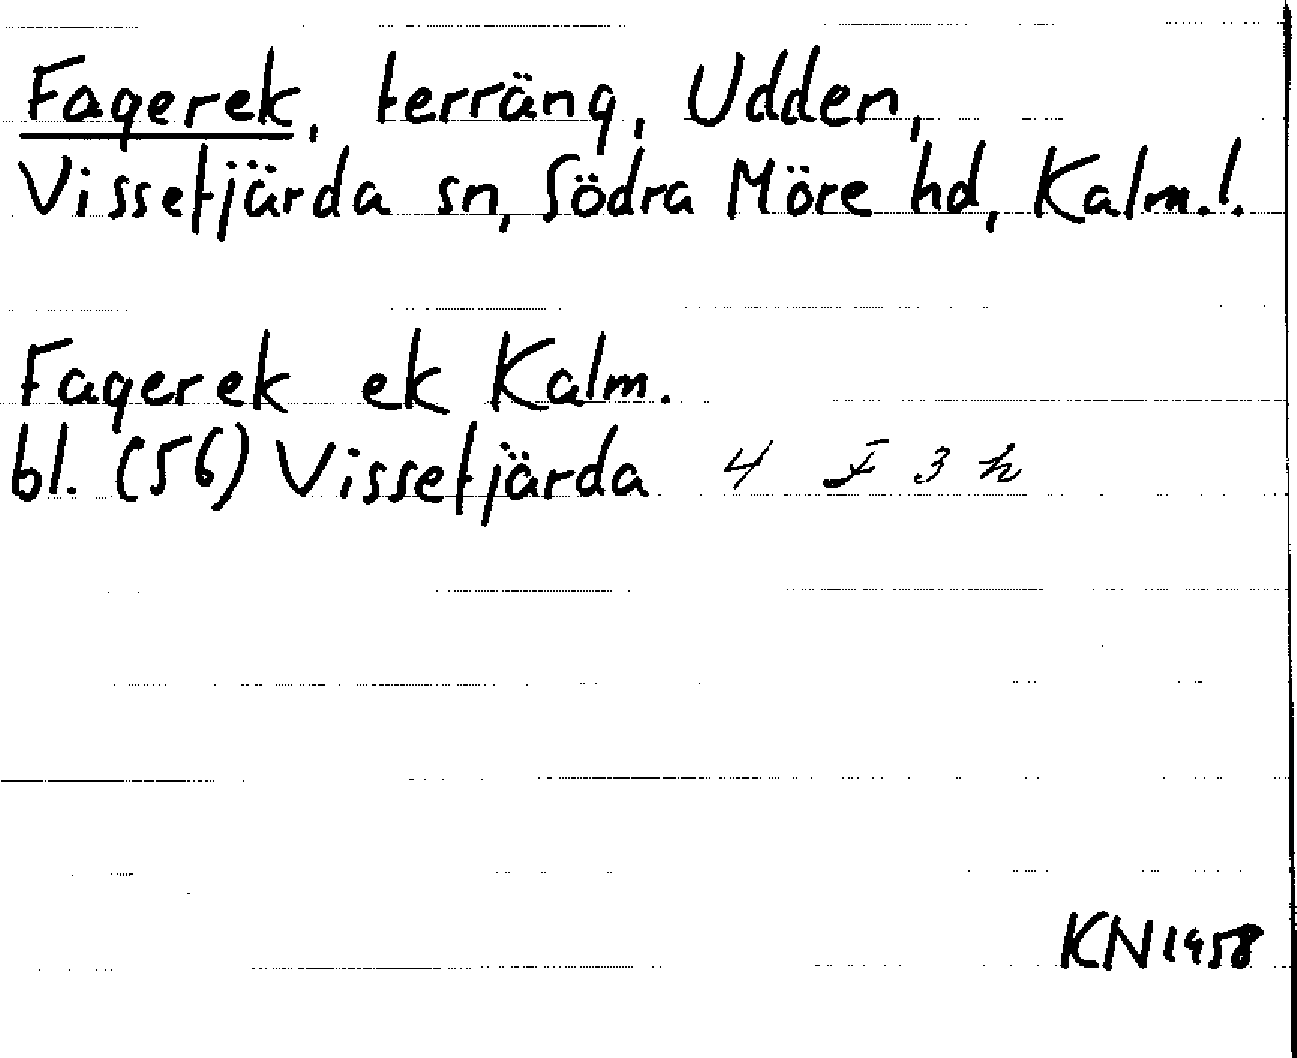 Fagerek, terräng, Udden,
Vissefjärda sn, Södra Möre hd, Kalm.l.
Fagerek ek Kalm.
bl. (56) Vissefjärda 4 F 3 h
KN 1958